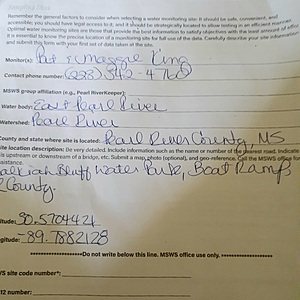 Remember the general factors to consider when selecting a water monitoring site: It should be safe, convenient, and
accessible; you should have legal access to it; and it should be strategically located to allow testing in an efficient manner.
Optimal water monitoring sites are those that provide the best information to satisfy objectives with the least amount of effort.
It is essential to know the precise location of a monitoring site for full use of the data. Carefully describe your site information
and submit this form with first set of data taken at the site.
Monitor(s): Pat & Maggie King
Contact phone number: (228) 342-4760
MSWS group affiliation (e.g., Pearl RiverKeeper):
Water body: East Pearl River
Watershed: Pearl River
County and state where site is located: Pearl River County, MS
Site location description: Be very detailed. Include information such as the name or number of the nearest road. Indicate
is upstream or downstream of a bridge, etc. Submit a map, photo (optional), and geo-reference. Call the MSWS office for
assistance.
Walkiah Bluff Water Park, Boat Ramp,
County.
itude: 30.5704421
gitude: -89.7882128
Do not write below this line. MSWS office use only.
S site code number*:
12 number: